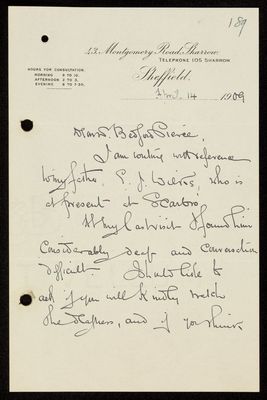 189
43, Montgomery Road, Sharrow.
TELEPHONE 105 SHARROW
HOURS FOR CONSULTATION.
MORNING 9 TO 10.
AFTERNOON 2 TO 3.
EVENING 6 TO 7-30.
Sheffield.
April 14 1909
Dear Dr Bedford Pierce,
I am writing with reference
to my father, E. J. Wilks, who is
at present at Scarboro.
At my last visit I found him
considerably deaf and conversation
difficult. I should like to
ask if you will kindly watch
the deafness, and if you think